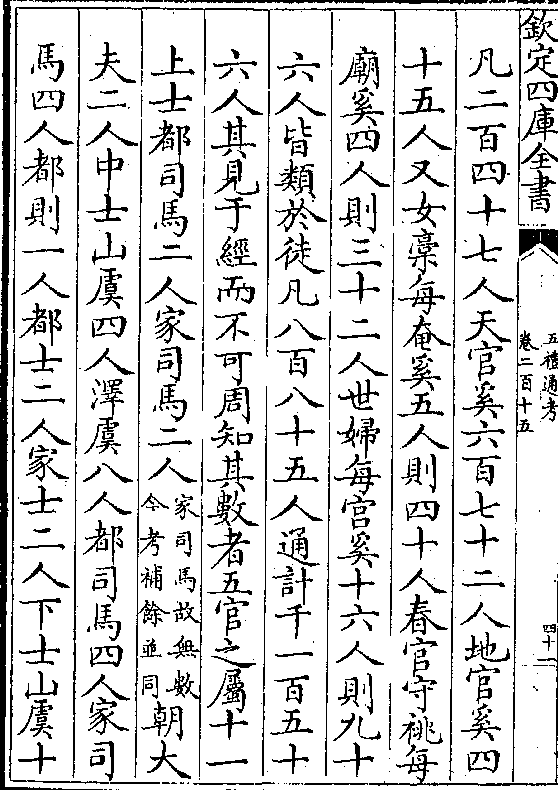 欽定四庫全書
五禮通考
卷二百十五
四十二
凡二百四十七人天官奚六百七十二人地官奚四
十五人又女稾每奄奚五人則四十人春官守祧每
廟奚四人則三十二人世婦每宮奚十六人則九十
六人皆類於徒凡八百八十五人通計千一百五十
六人其見于經而不可周知其數者五官之屬十一
上士都司馬二人家司馬二人家司馬故無數今考補餘並同朝大
夫二人中士山虞四人澤虞八人都司馬四人家司
馬四人都則一人都士二人家士二人下士山虞十